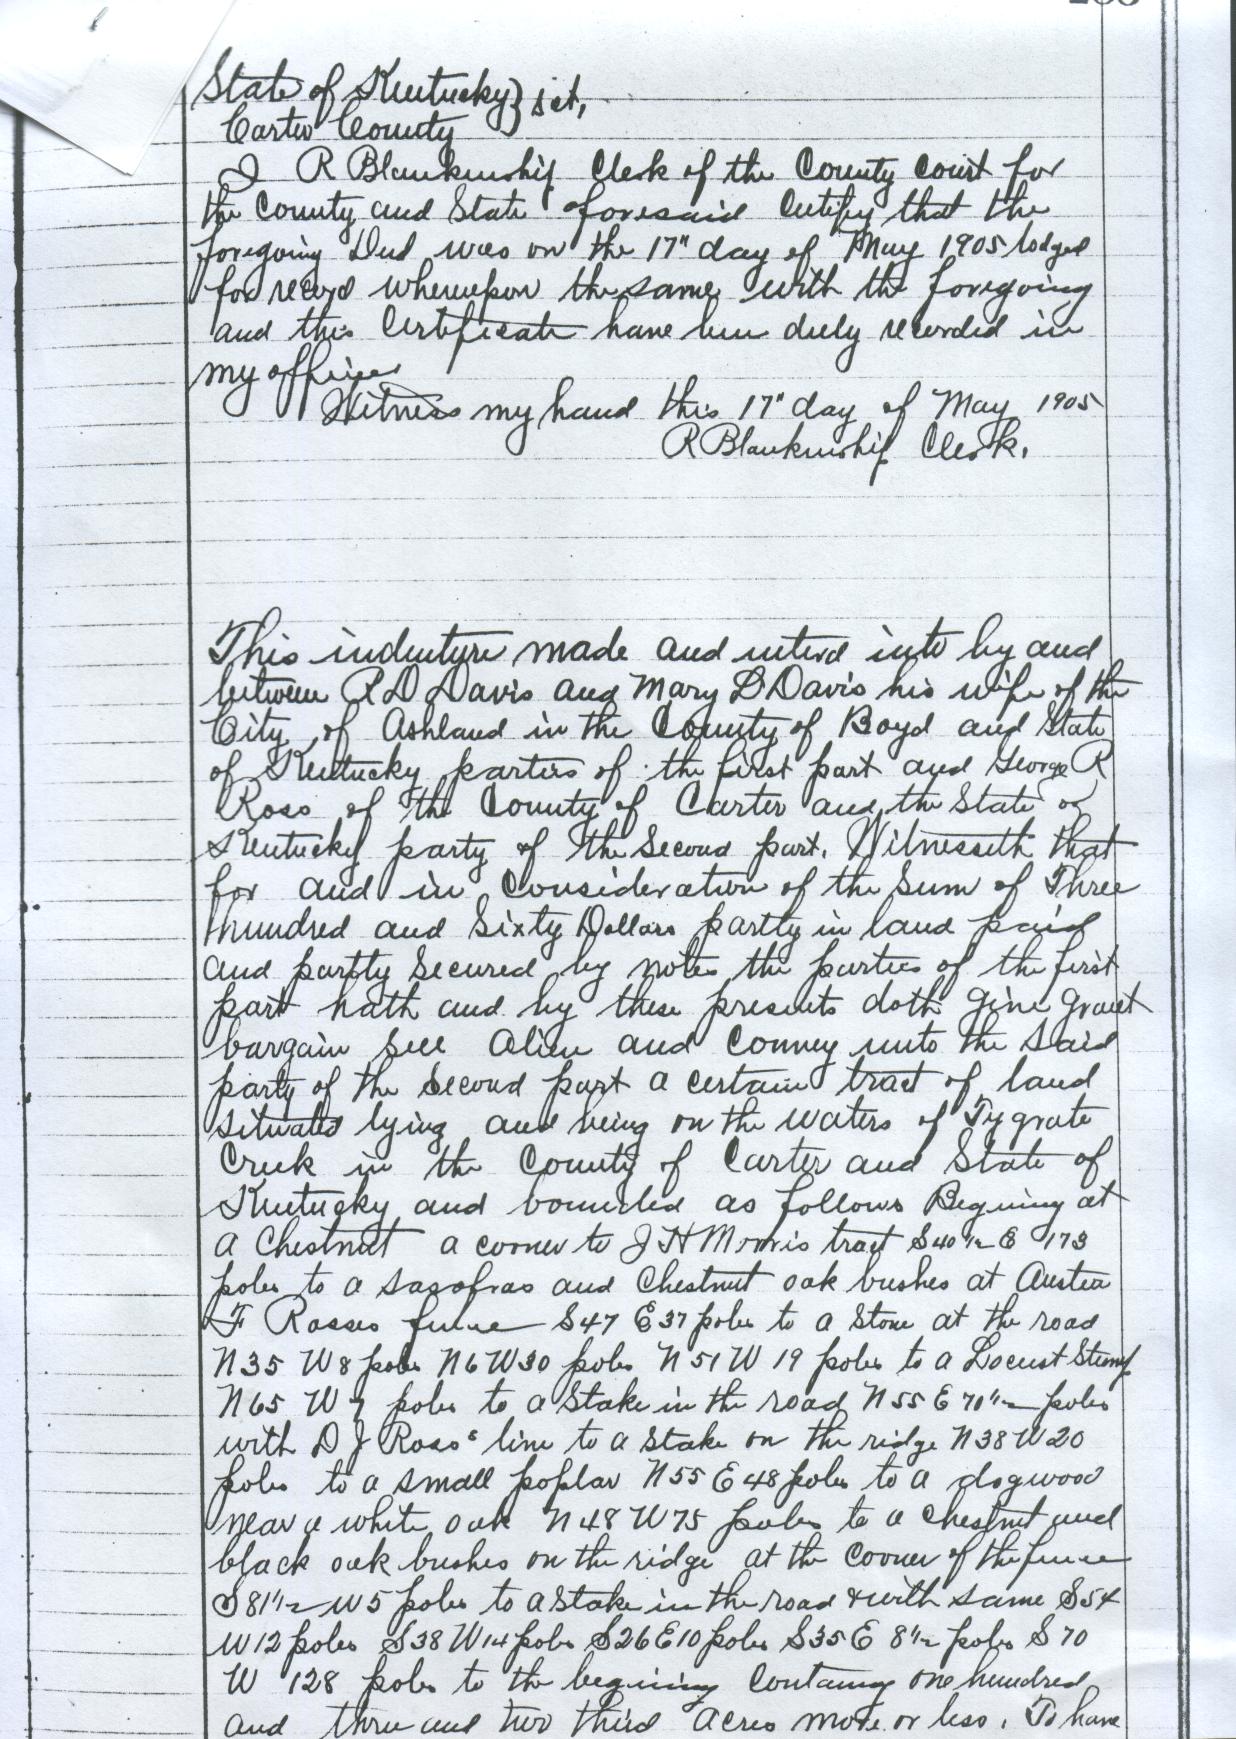 State of Kentucky } sct,
Carter County
I R Blankenship Clerk of the County Court for
the County and State aforesaid Certify that the
foregoing Deed was on the 17" day of May 1905 lodged
for record whereupon the same with the foregoing
and this Certificate have been duly recorded in
my office
Witness my hand this 17" day of May 1905
R Blankenship Clerk.
This indenture made and interd into by and
between R D Davis and Mary D Davis his wife of the
City of Ashland in the County of Boyd and State
of Kentucky parties of the first part and George R
Ross of the County of Carter and the State of
Kentucky party of the Second part. Witnesseth that
for and in Consideration of the Sum of Three
hundred and Sixty Dollars partly in land paid
and partly Secured by notes the parties of the first
part hath and by these presents doth give grant
bargain sell Alien and Convey unto the Said
party of the Second part a certain tract of land
situated lying and being on the waters of Tygrate
Creek in the County of Carter and State of
Kentucky and bounded as follows Begining at
a Chestnut a corner to J H Morris tract S40 1/2 E 173
poles to a sasofras and Chestnut oak bushes at
F Rosses fence S47 E 37 poles to a Stone at the road
N35 W8 poles N6 W30 poles N51 W 19 poles to a Locust Stump
N65 W 7 poles to a Stake in the road N55 E 70 1/2 poles
with D J Ross' line to a Stake on the ridge N38 W20
poles to a small poplar N55 E 48 poles to a dogwood
near a white oak N48 W75 poles to a Chestnut and
black oak bushes on the ridge at the Corner of the fence
S81 1/2 W5 poles to a Stake in the road & with same S54
W12 poles S38 W14 poles S26 E10 poles S35 E 8 1/2 poles S70
W 128 poles to the begining Containg one hundred
and three and two third Acres more or less. To have